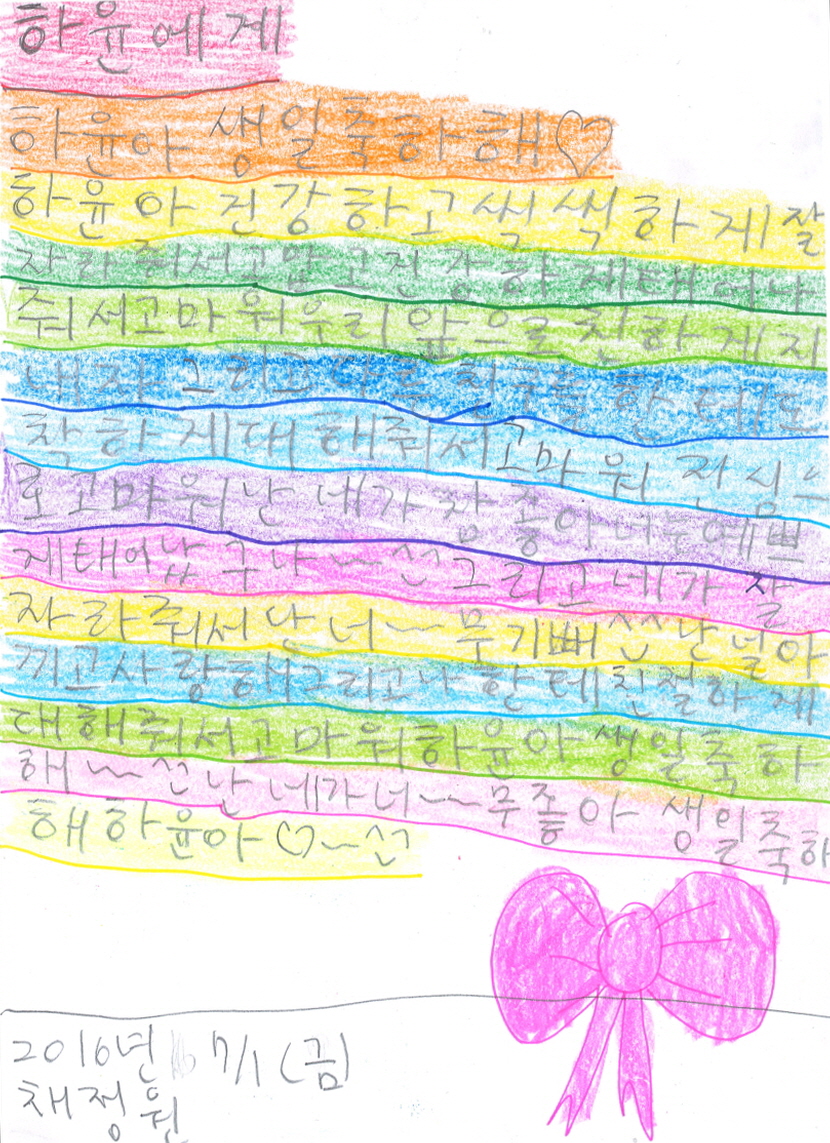 하윤에게
하윤아 생일축하해♡
하윤아 건강하고씩씩하게잘
자라줘서고맙고건강하게태어나
줘서고마워우리앞으로친하게지
내자그리고다른친구들한테도
착하게대해줘서고마워 진심으
로고마워난네가참좋아너무예쁘
게태어났구나~^^그리고네가잘
자라줘서난너~~무기뻐^^난널아
끼고사랑해그리고나한테친절하게
대해줘서고마워하윤아생일축하
해~^^난네가너~~무좋아 생일축하
해하윤아♡~^^
2016년 7/1(금)
채정원